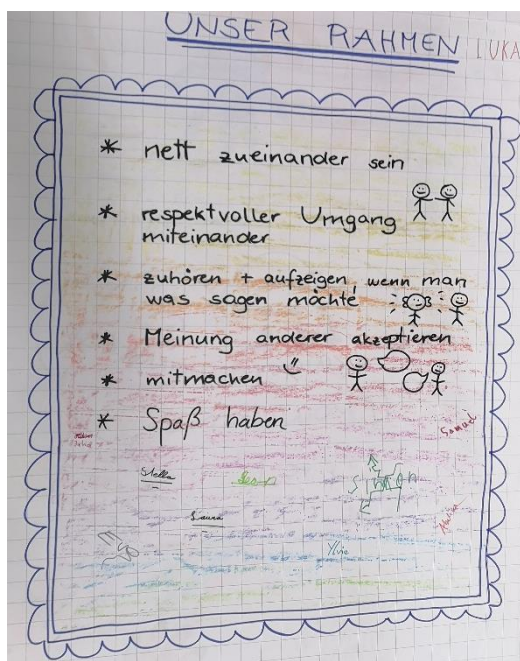 UNSER RAHMEN
LUKA
* nett zueinander sein
* respektvoller Umgang
miteinander
* zuhören + aufzeigen, wenn man
was sagen möchte
* Meinung anderer akzeptieren
* mitmachen
* Spaß haben
Samuel
Stella
Simon
Laura
Ylvie